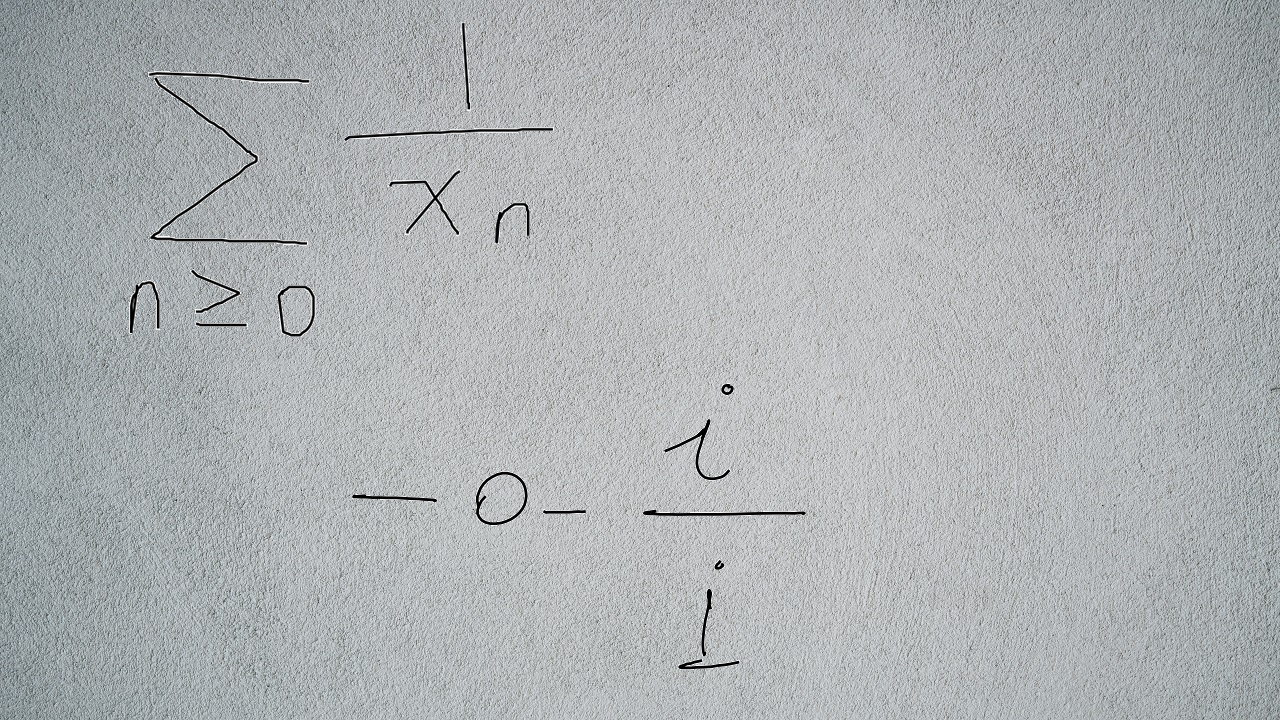 ∑_{n≥0} 1/x_n
− 0 − i/i